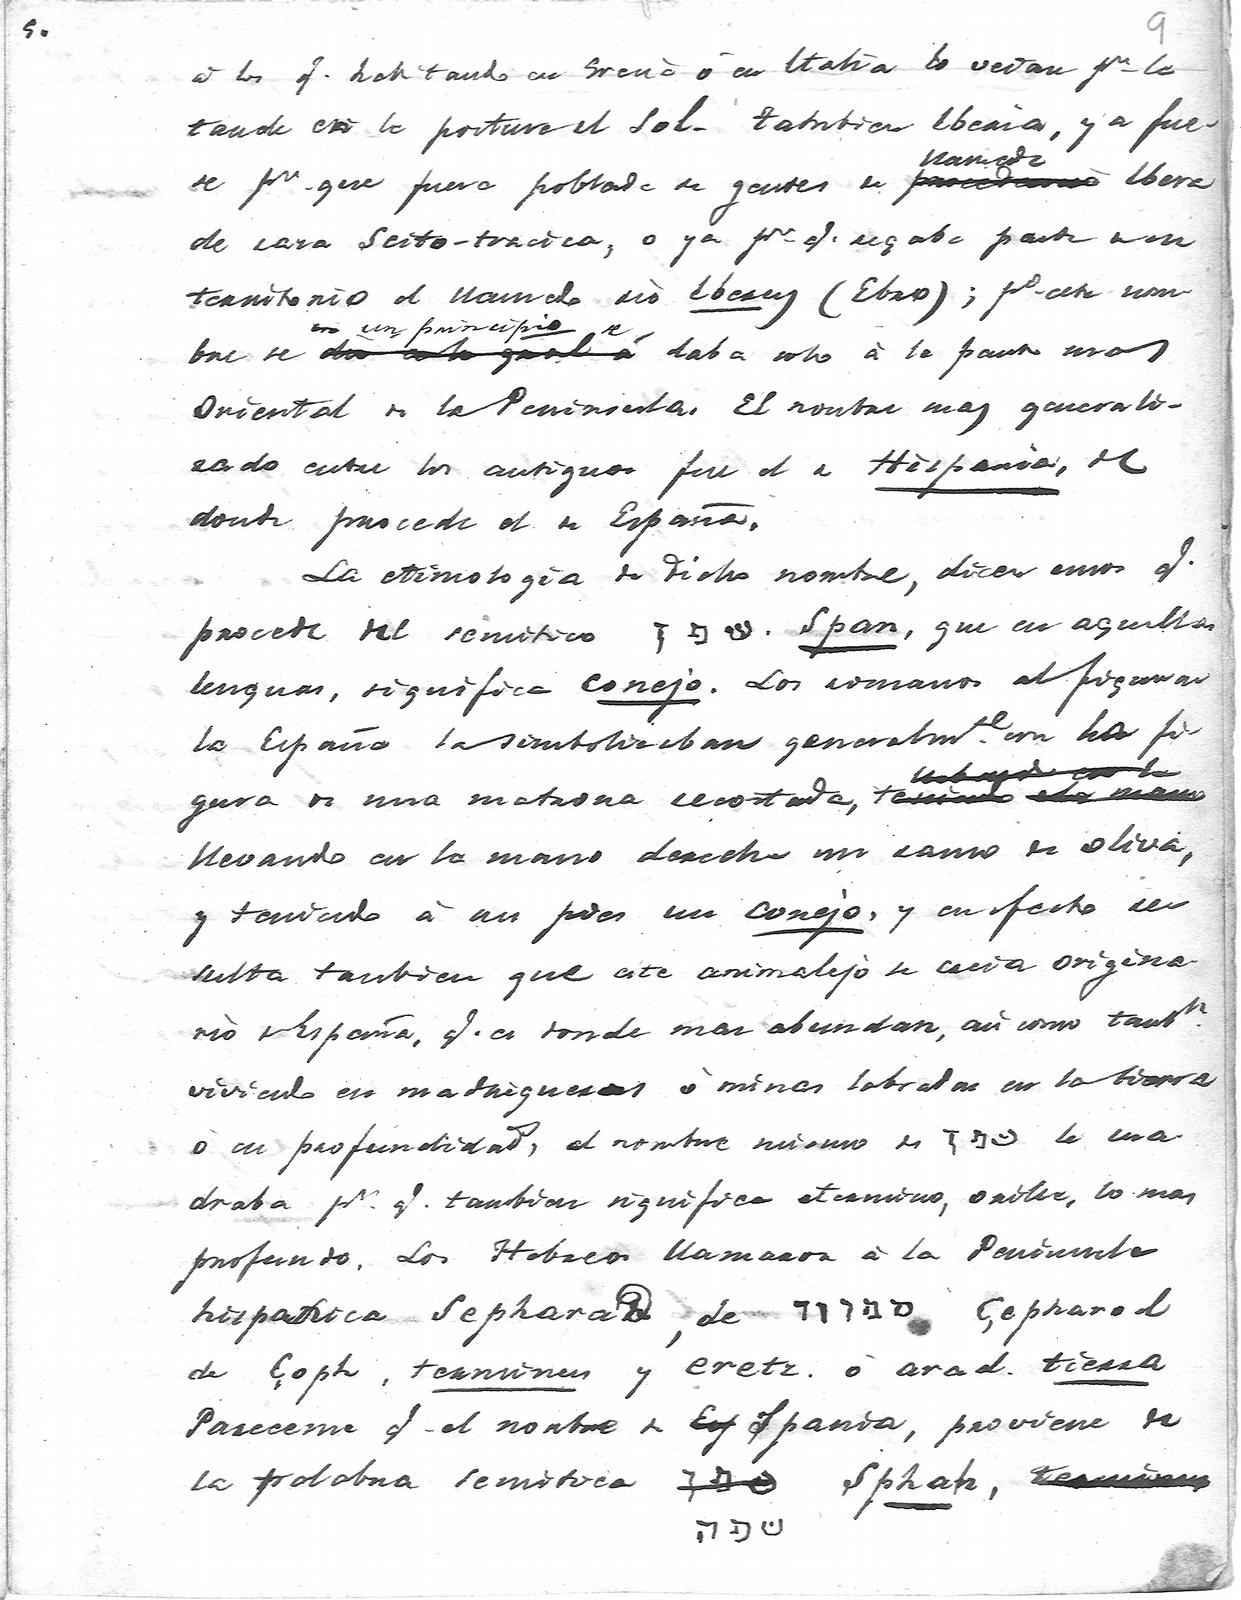 5.
9
á los q. habitando en Grecia ó en Italia lo veían pr. la
tarde en la postura el Sol. Tambien Iberia, ya fue-
se pr. que fuera poblada de gentes de llamada Ibera
de raza Scito-tracica, o ya pr. q. regaba parte de su
territorio el llamado rio Iberus (Ebro); pº este nom-
en un principio se
bre se daba solo á la parte mas
Oriental de la Peninsula. El nombre mas generali-
zado entre los antiguos fue el de Hispania, de
donde procede el de España.
La etimologia de dicho nombre, dicen unos q.
procede del semitico שפן. Span, que en aquellas
lenguas, significa conejo. Los romanos al figurar
la España la simbolizaban generalmte. con la fi-
gura de una matrona recostada, teniendo en la mano
llevando en la mano derecha un ramo de oliva,
y teniendo á sus pies un conejo, y en efecto re-
sulta tambien que este animalejo se creia origina-
rio de España, q. es donde mas abundan, asi como tambn.
viviendo en madrigueras ó minas labradas en la tierra
ó en profundidad, el nombre mismo de שפן le cua
draba pr. q. tambien significa termino, orilla, lo mas
profundo. Los Hebreos llamaron á la Peninsula
hispanica Sepharad, de ספרוד Çepharod
de Çoph, terminus y eretz. ó arad. tierra
Pareceme q. el nombre de Spania, proviene de
la palabra semitica שפן Sphah, terminus
שפה